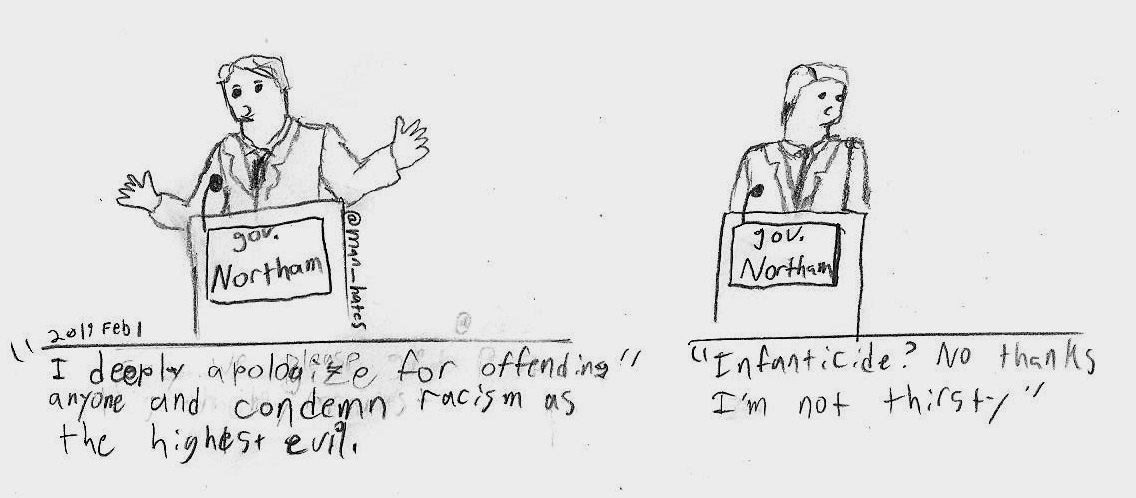 gov.
Northam
@man_hates
2019 Feb 1
"I deeply apologize for offending"
anyone and condemn racism as
the highest evil.
@
gov.
Northam
"Infanticide? No thanks
I'm not thirsty"